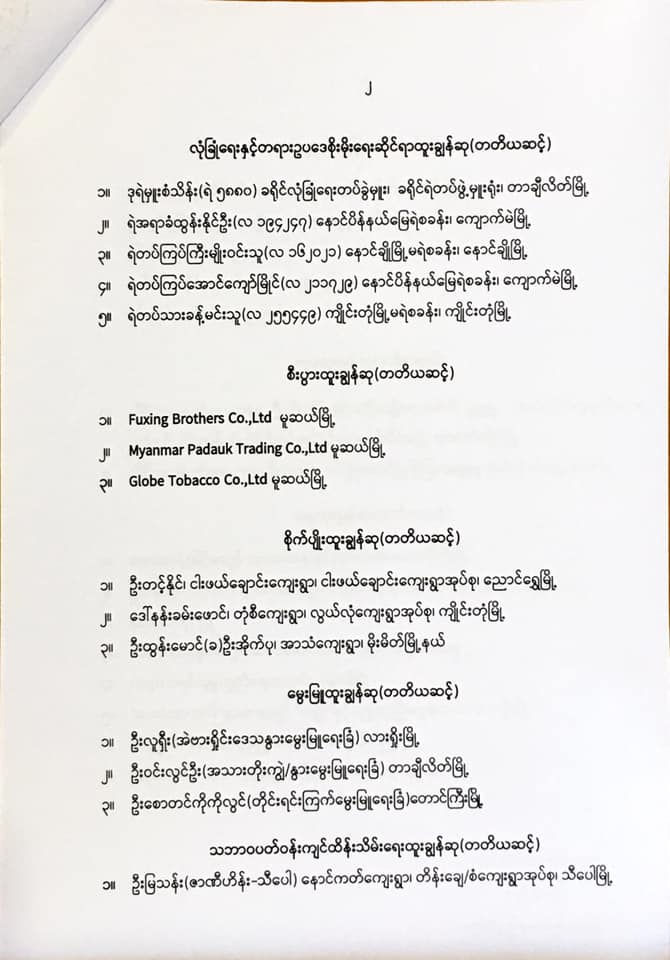 ၂
လုံခြုံရေးနှင့်တရားဥပဒေစိုးမိုးရေးဆိုင်ရာထူးချွန်ဆု(တတိယဆင့်)
၁။ ဒုရဲမှူးစံသိန်း(ရဲ ၅၈၈၀) ခရိုင်လုံခြုံရေးတပ်ခွဲမှူး၊ ခရိုင်ရဲတပ်ဖွဲ့မှူးရုံး၊ တာချီလိတ်မြို့
၂။ ရဲအရာခံထွန်းနိုင်ဦး(လ ၁၉၄၂၄၇) နောင်ပိန်နယ်မြေရဲစခန်း၊ ကျောက်မဲမြို့
၃။ ရဲတပ်ကြပ်ကြီးမျိုးဝင်းသူ(လ ၁၆၂၀၂၁) နောင်ချိုမြို့မရဲစခန်း၊ နောင်ချိုမြို့
၄။ ရဲတပ်ကြပ်အောင်ကျော်မြိုင်(လ ၂၁၁၇၂၉) နောင်ပိန်နယ်မြေရဲစခန်း၊ ကျောက်မဲမြို့
၅။ ရဲတပ်သားခန့်မင်းသူ(လ ၂၅၅၄၄၉) ကျိုင်းတုံမြို့မရဲစခန်း၊ ကျိုင်းတုံမြို့
စီးပွားထူးချွန်ဆု(တတိယဆင့်)
၁။ Fuxing Brothers Co.,Ltd မူဆယ်မြို့
၂။ Myanmar Padauk Trading Co.,Ltd မူဆယ်မြို့
၃။ Globe Tobacco Co.,Ltd မူဆယ်မြို့
စိုက်ပျိုးထူးချွန်ဆု(တတိယဆင့်)
၁။ ဦးတင့်နိုင်၊ ငါးဖယ်ချောင်းကျေးရွာ၊ ငါးဖယ်ချောင်းကျေးရွာအုပ်စု၊ ညောင်ရွှေမြို့
၂။ ဒေါ်နန်းခမ်းဖောင်၊ တုံစီကျေးရွာ၊ လွယ်လုံကျေးရွာအုပ်စု၊ ကျိုင်းတုံမြို့
၃။ ဦးထွန်းမောင်(ခ)ဦးအိုက်ပု၊ အာသံကျေးရွာ၊ မိုးမိတ်မြို့နယ်
မွေးမြူထူးချွန်ဆု(တတိယဆင့်)
၁။ ဦးလူရှီး(အဲဗားရှိုင်းဒေသနွားမွေးမြူရေးခြံ) လားရှိုးမြို့
၂။ ဦးဝင်းလွင်ဦး(အသားတိုးကျွဲ/နွားမွေးမြူရေးခြံ) တာချီလိတ်မြို့
၃။ ဦးစောတင်ကိုကိုလွင်(တိုင်းရင်းကြက်မွေးမြူရေးခြံ)တောင်ကြီးမြို့
သဘာဝပတ်ဝန်းကျင်ထိန်းသိမ်းရေးထူးချွန်ဆု(တတိယဆင့်)
၁။ ဦးမြသန်း(ဇာဏီဟိန်း-သီပေါ) နောင်ကတ်ကျေးရွာ၊ တိန်းချေ/စံကျေးရွာအုပ်စု၊ သီပေါမြို့